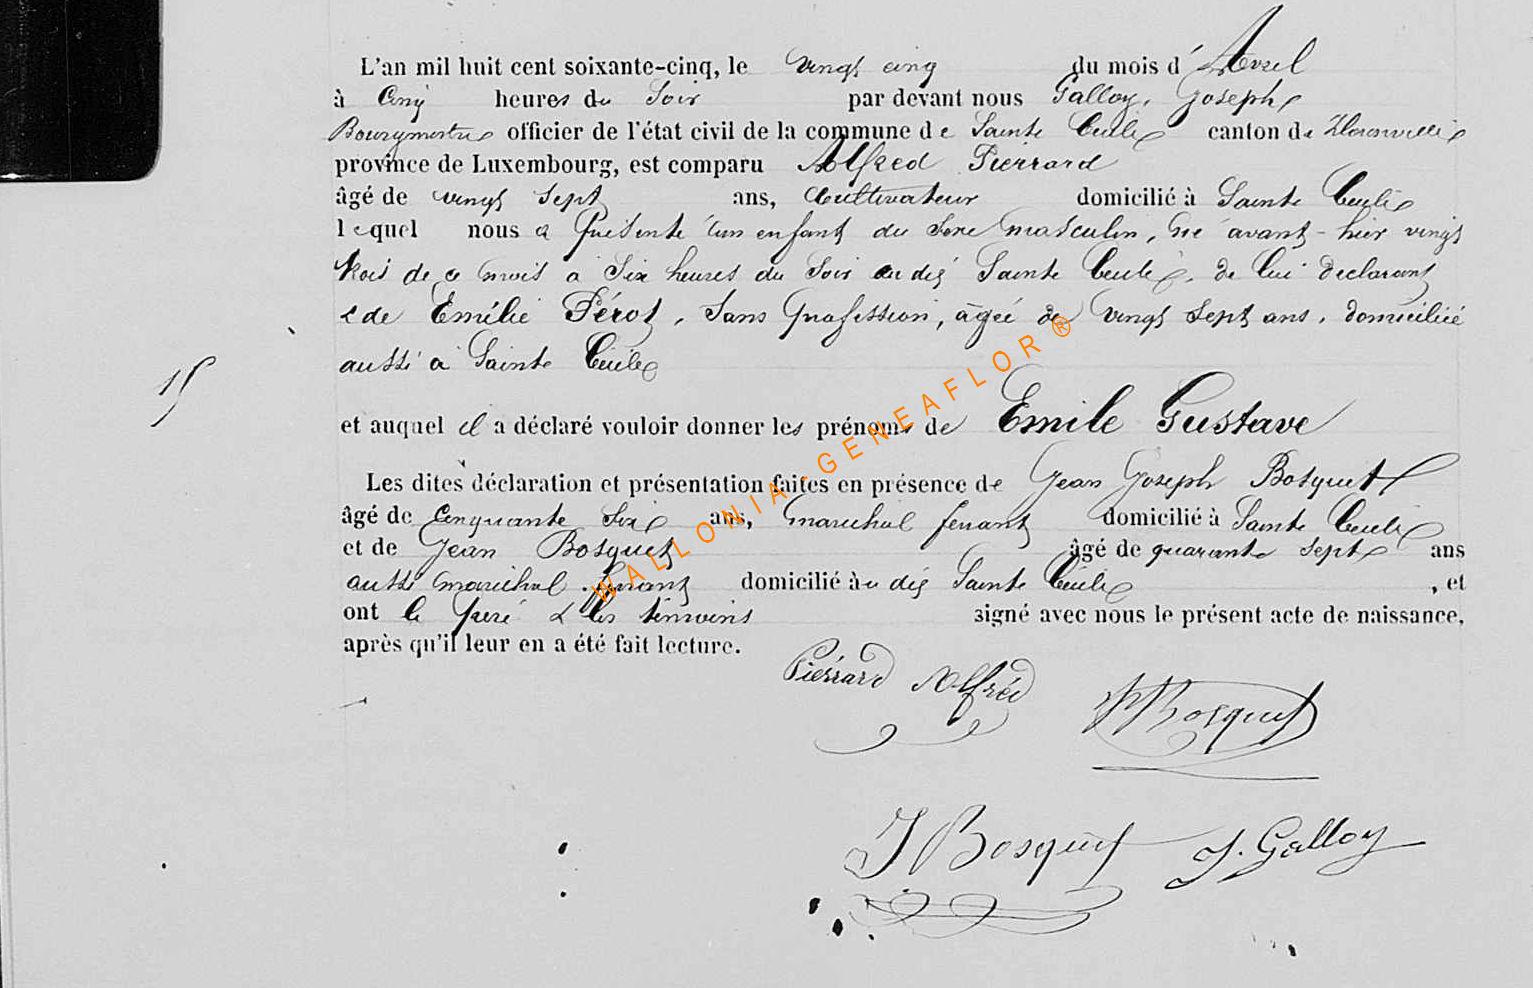 L'an mil huit cent soixante-cinq, le vingt cinq du mois d'Avril
à Cinq heures du Soir par devant nous Galloy, Joseph
Bourgmestre officier de l'état civil de la commune de Sainte Cécile canton de Florenville
province de Luxembourg, est comparu Alfred Pierrard
âgé de vingt sept ans, Cultivateur domicilié à Sainte Cécile
lequel nous a présenté un enfant du sexe masculin, né avant-hier vingt
trois de ce mois à Six heures du Soir au dit Sainte Cécile, de lui déclarant
& de Emélie Pérot, Sans profession, âgée de vingt sept ans, domiciliée
aussi à Sainte Cécile
15
et auquel il a déclaré vouloir donner les prénoms de Emile Gustave
Les dites déclaration et présentation faites en présence de Jean Joseph Bosquet
âgé de Cinquante Six ans, maréchal ferrant domicilié à Sainte Cécile
et de Jean Bosquet âgé de quarante sept ans
aussi maréchal ferrant domicilié au dit Sainte Cécile, et
ont le père & les témoins signé avec nous le présent acte de naissance,
après qu'il leur en a été fait lecture.
Piérrard Alfréd
Bosquet
J Bosquet J. Galloy
WALLONIA-GENEAFLOR®